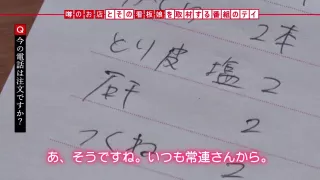 噂のお店とその看板娘を取材する番組のテイ
Q 今の電話は注文ですか？
2本
とり皮 塩 2
肝 2
つくね 2
あ、そうですね。いつも常連さんから。